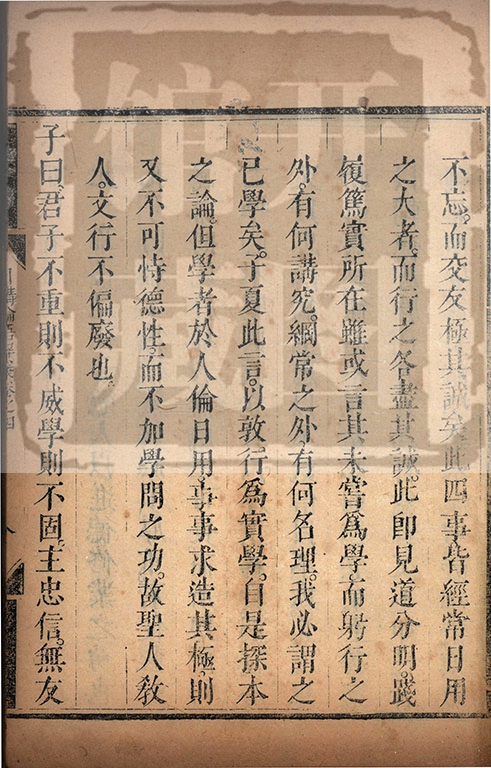 不忘。而交友極其誠矣。此四事皆經常日用
之大者。而行之各盡其誠。此卽見道分明。踐
履篤實所在。雖或言其未嘗爲學。而躬行之
外。有何講究。綱常之外。有何名理。我必謂之
已學矣。子夏此言。以敦行爲實學。自是探本
之論。但學者於人倫日用。事事求造其極。則
又不可恃德性而不加學問之功。故聖人敎
人。文行不偏廢也
子曰。君子不重則不威學則不固。主忠信。無友